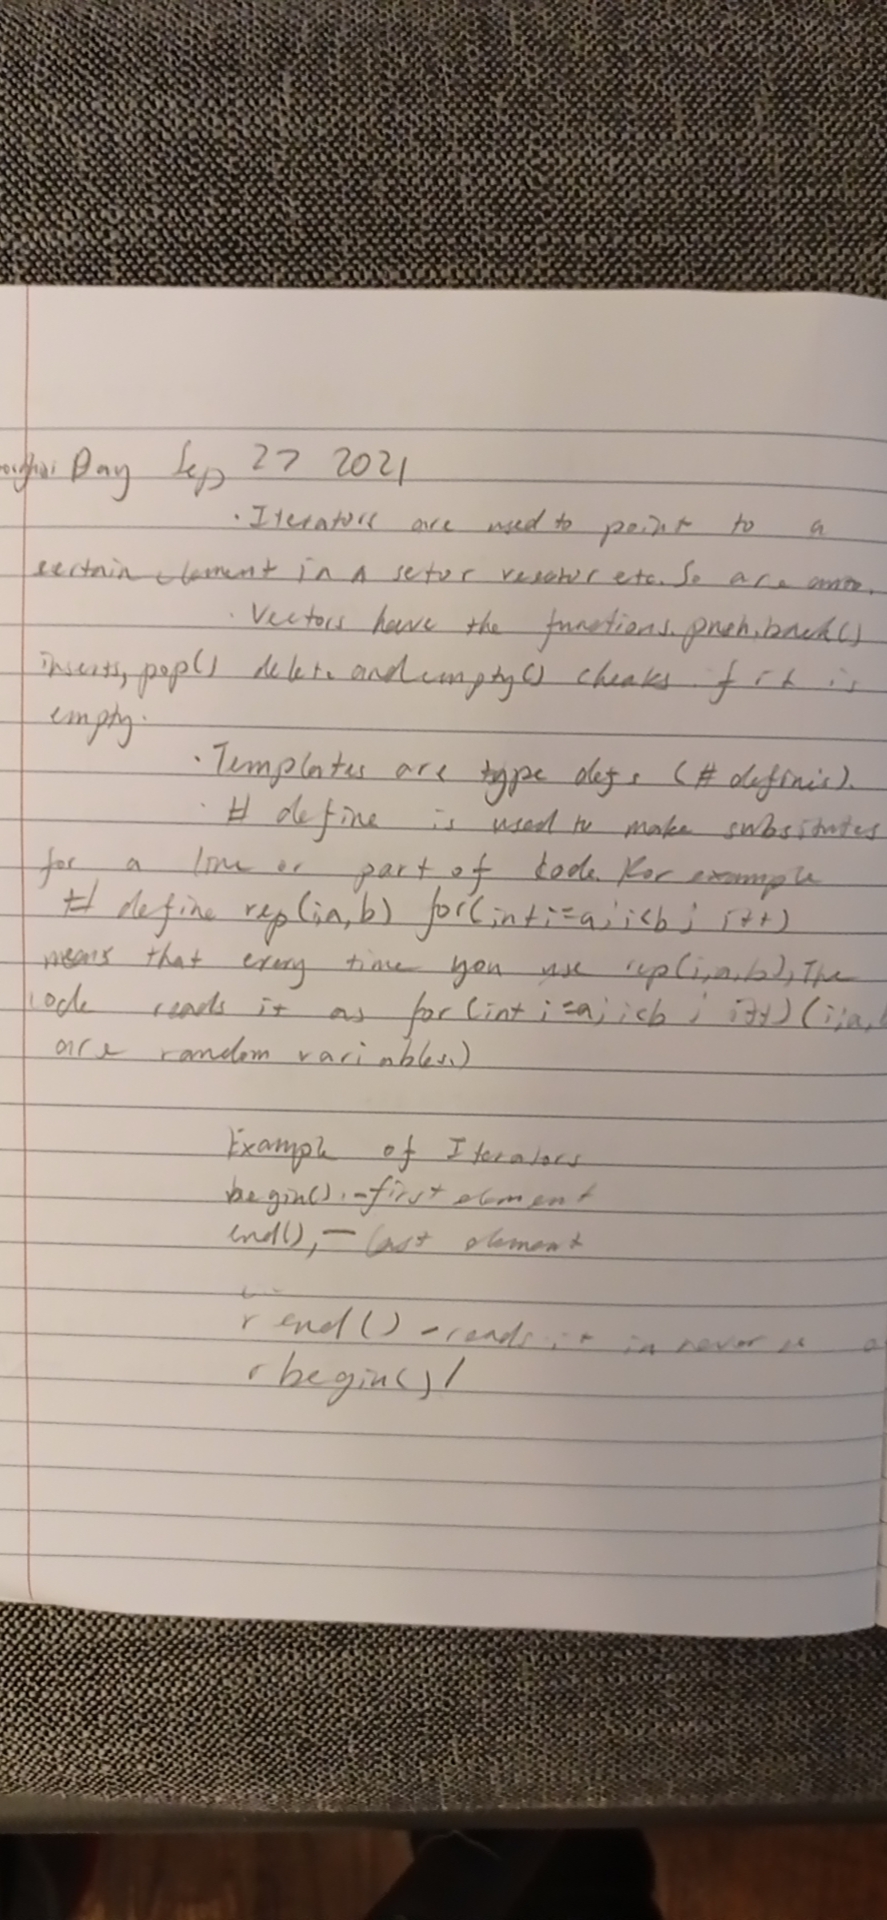 Day Sep 27 2021
· Iterators are used to point to a
certain element in a set or vecotor etc. So are
· Vectors have the functions. push.back()
inserts, pop() delete and empty() cheaks if it is
empty.
· Templates are type defs (# defines).
· # define is used to make subsitutes
for a line or part of code. For example
# define rep(i,a,b) for(int i=a; i<b; i++)
means that every time you use rep(i,a,b), The
code reads it as for(int i=a; i<b ; i++) (i,a,
are random variables.)
Example of Iterators
begin(). - first element
end(), - last element
rend() - reads it in
rbegin() /